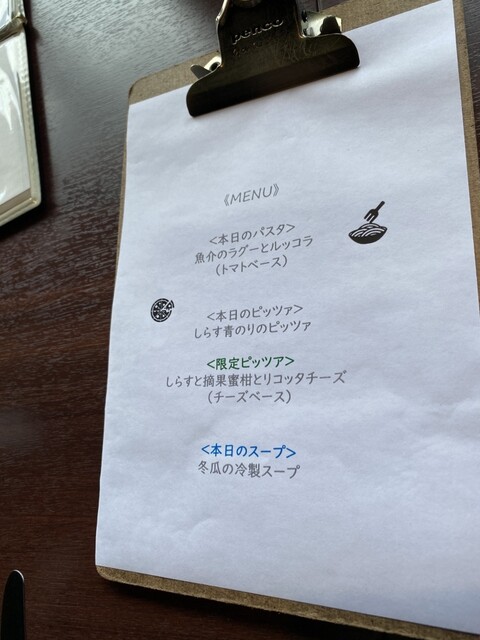 penco
《MENU》
<本日のパスタ>
魚介のラグーとルッコラ
(トマトベース)
<本日のピッツァ>
しらす青のりのピッツァ
<限定ピッツア>
しらすと摘果蜜柑とリコッタチーズ
(チーズベース)
<本日のスープ>
冬瓜の冷製スープ